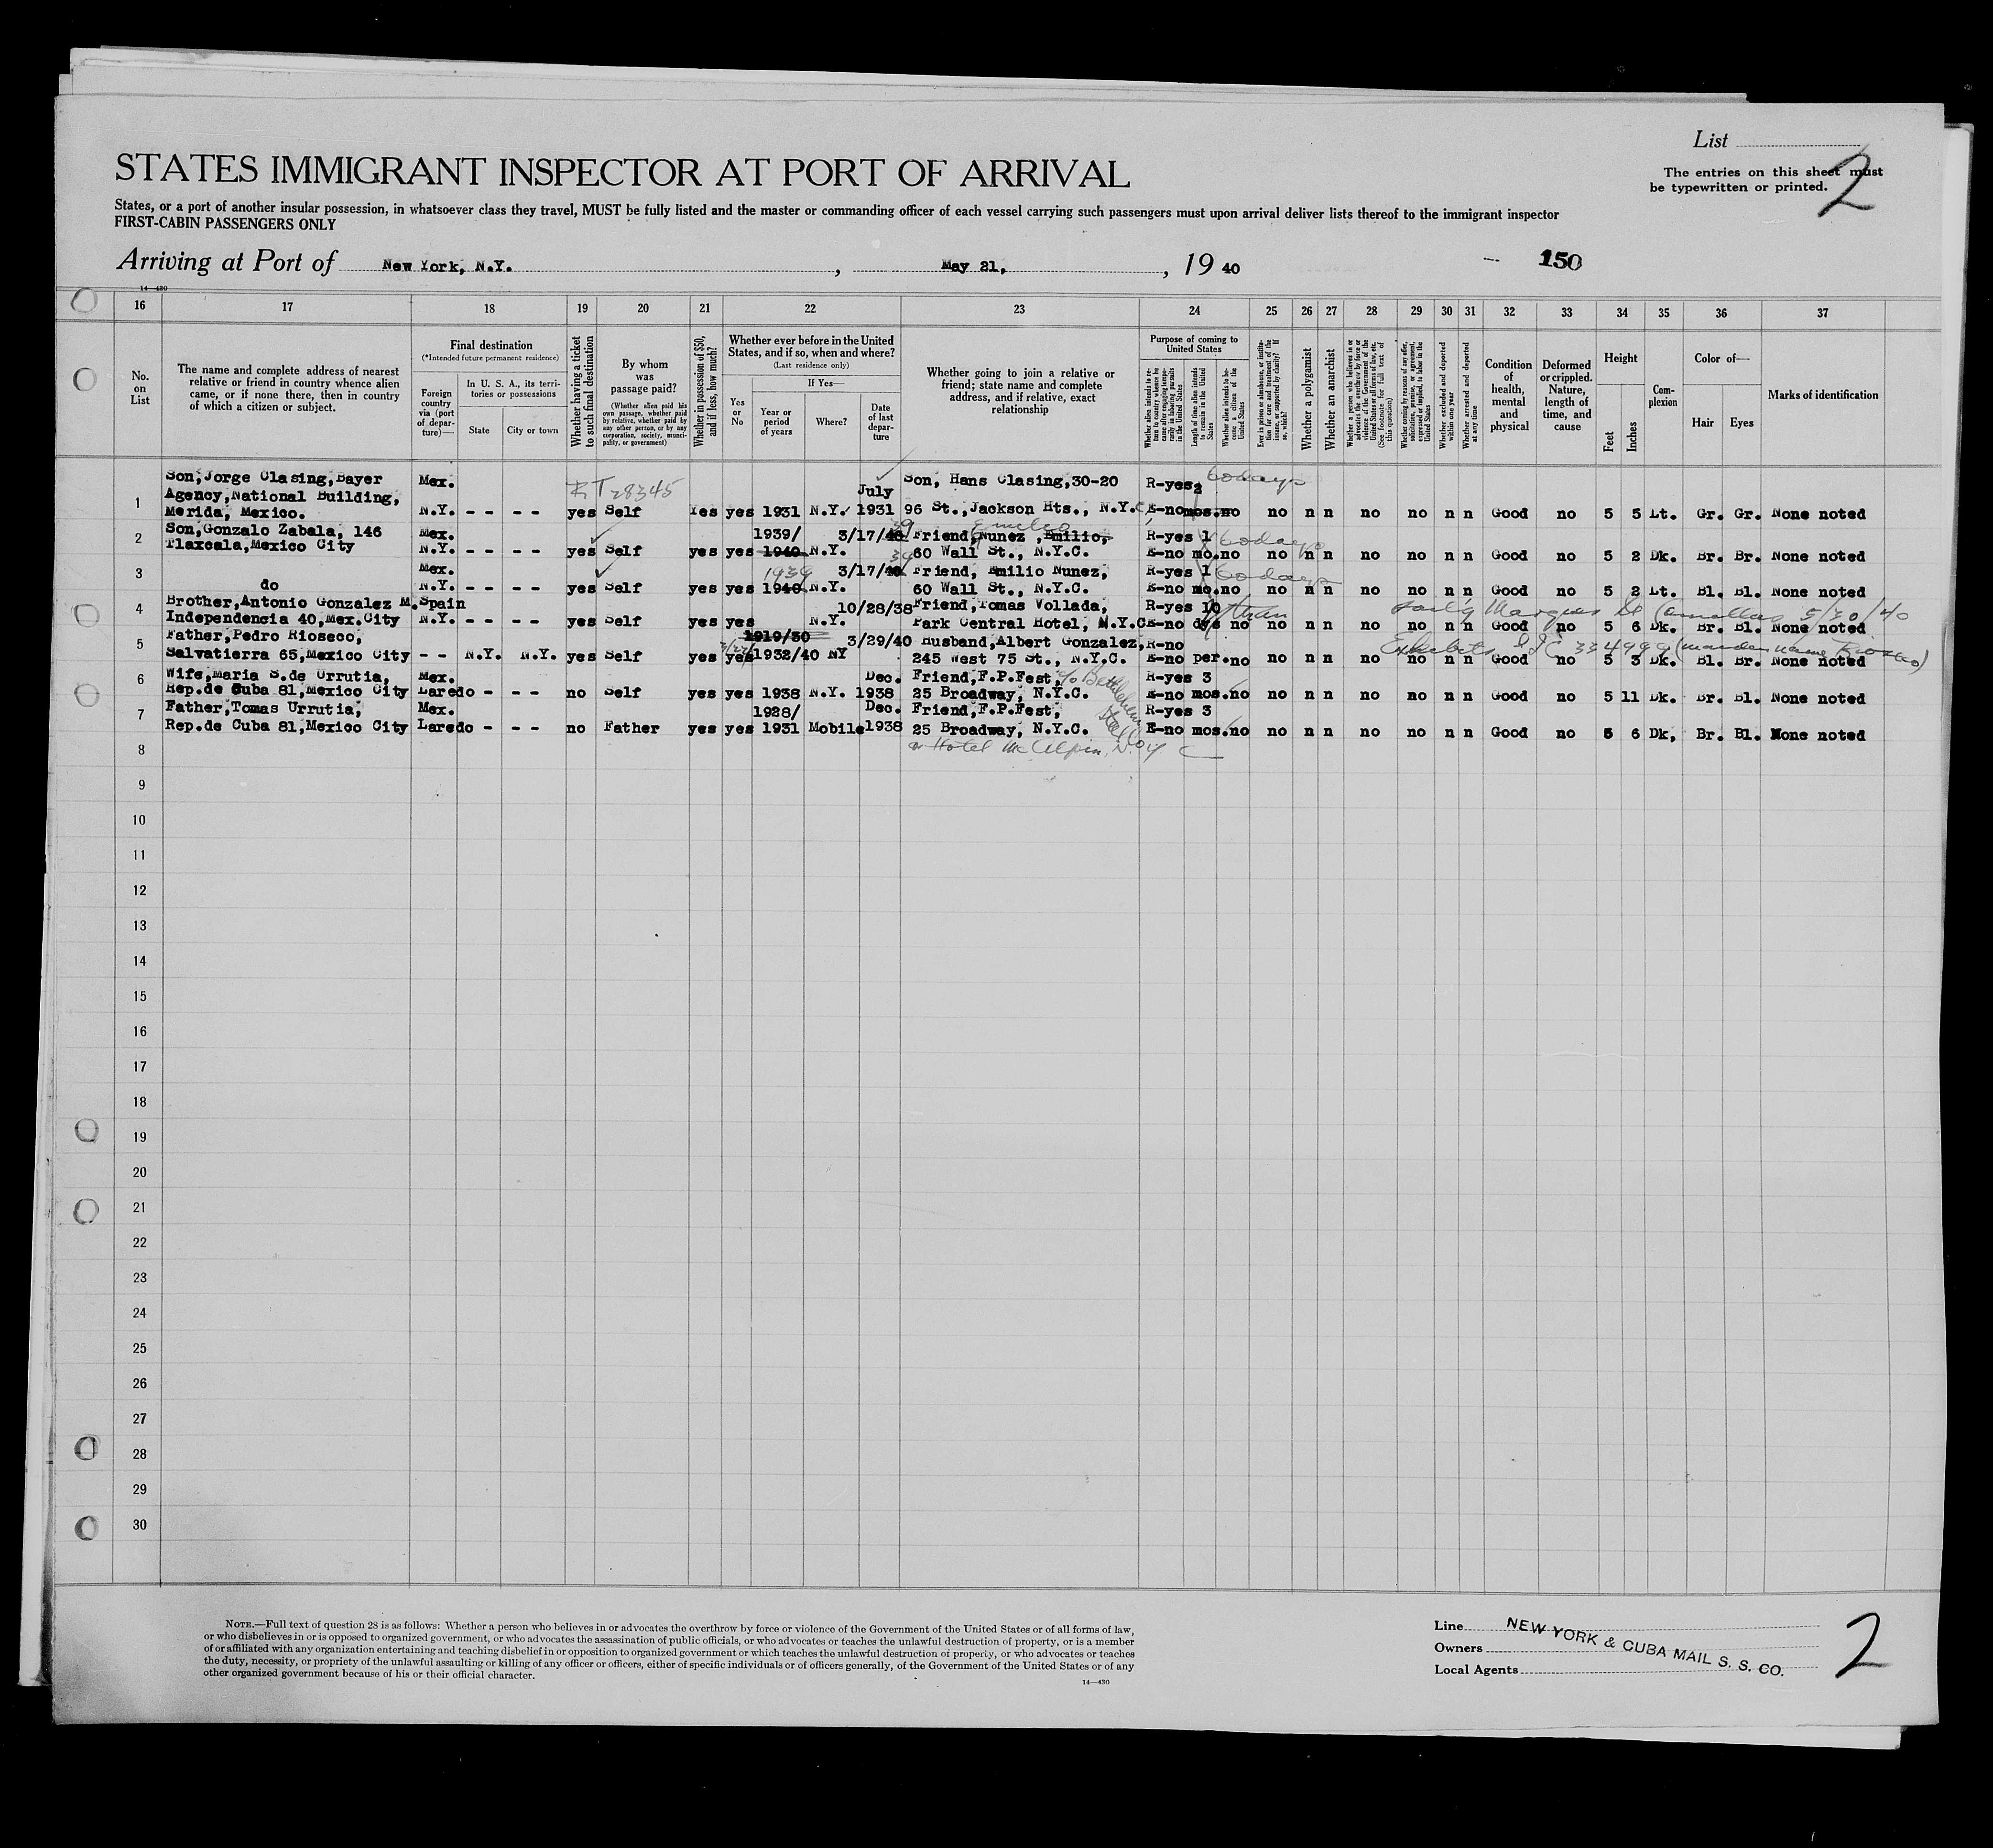 List
The entries on this sheet must
be typewritten or printed.
2
STATES IMMIGRANT INSPECTOR AT PORT OF ARRIVAL
States, or a port of another insular possession, in whatsoever class they travel, MUST be fully listed and the master or commanding officer of each vessel carrying such passengers must upon arrival deliver lists thereof to the immigrant inspector
FIRST-CABIN PASSENGERS ONLY
Arriving at Port of New York, N.Y. , May 21, , 19 40 150
14—430
16 17 18 19 20 21 22 23 24 25 26 27 28 29 30 31 32 33 34 35 36 37
No. on List
The name and complete address of nearest relative or friend in country whence alien came, or if none there, then in country of which a citizen or subject.
Final destination
(*Intended future permanent residence)
Foreign country via (port of departure)—
In U. S. A., its territories or possessions
State
City or town
Whether having a ticket to such final destination
By whom was passage paid?
(Whether alien paid his own passage, whether paid by relative, whether paid by any other person, or by any corporation, society, municipality, or government)
Whether in possession of $50, and if less, how much?
Whether ever before in the United States, and if so, when and where?
(Last residence only)
Yes or No
If Yes—
Year or period of years
Where?
Date of last departure
Whether going to join a relative or friend; state name and complete address, and if relative, exact relationship
Purpose of coming to United States
Whether alien intends to return to country whence he came after engaging temporarily in laboring pursuits in the United States
Length of time alien intends to remain in the United States
Whether alien intends to become a citizen of the United States
Ever in prison or almshouse, or institution for care and treatment of the insane, or supported by charity? If so, which?
Whether a polygamist
Whether an anarchist
Whether a person who believes in or advocates the overthrow by force or violence of the Government of the United States or all forms of law, etc. (See footnote for full text of this question)
Whether coming by reasons of any offer, solicitation, promise, or agreement, expressed or implied, to labor in the United States
Whether excluded and deported within one year
Whether arrested and deported at any time
Condition of health, mental and physical
Deformed or crippled. Nature, length of time, and cause
Height
Feet
Inches
Complexion
Color of—
Hair
Eyes
Marks of identification
Son, Jorge Clasing, Bayer Mex. RT 28345 July Son, Hans Clasing, 30-20 R-yes 2 60 days
1 Agency, National Building,
Merida, Mexico. N.Y. - - - - yes Self Yes yes 1931 N.Y. 1931 96 St., Jackson Hts., N.Y.C. E-no mos. no no n n no no n n Good no 5 5 Lt. Gr. Gr. None noted
2 Son, Gonzalo Zabala, 146 Mex. 1939/ 3/17/40 39 Friend, Nunez, Emilio, Emilio R-yes 1 60 days
Tlaxcala, Mexico City N.Y. - - - - yes Self yes yes 1940 N.Y. 60 Wall St., N.Y.C. E-no mo. no no n n no no n n Good no 5 2 Dk. Br. Br. None noted
3 Mex. 1939 3/17/40 39 Friend, Emilio Nunez, R-yes 1 60 days
do N.Y. - - - - yes Self yes yes 1940 N.Y. 60 Wall St., N.Y.C. E-no mo. no no n n no no n n Good no 5 2 Lt. Bl. Bl. None noted
4 Brother, Antonio Gonzalez M. Spain 10/28/38 Friend, Tomas Vollada, R-yes 10 5/30/40
Independencia 40, Mex. City N.Y. - - - - yes Self yes yes N.Y. Park Central Hotel, N.Y.C. E-no dys no no n n no no n n Good no 5 6 Dk. Br. Bl. None noted
5 Father, Pedro Rioseco, 1919/30 3/29/40 Husband, Albert Gonzalez, R-no Exhibits 334999 (maiden name Rioseco)
Salvatierra 65, Mexico City - - N.Y. N.Y. yes Self yes yes 1932/40 NY 245 West 75 St., N.Y.C. E-no per. no no n n no no n n Good no 5 3 Dk. Bl. Br. None noted
6 Wife, Maria S. de Urrutia, Mex. Dec. Friend, F.P. Fest, c/o Bethlehem Steel Co R-yes 3
Rep. de Cuba 81, Mexico City Laredo - - - no Self yes yes 1938 N.Y. 1938 25 Broadway, N.Y.C. E-no mos. no no n n no no n n Good no 5 11 Dk. Br. Bl. None noted
7 Father, Tomas Urrutia, Mex. 1928/ Dec. Friend, F.P. Fest, R-yes 3
Rep. de Cuba 81, Mexico City Laredo - - - no Father yes yes 1931 Mobile 1938 25 Broadway, N.Y.C. E-no mos. no no n n no no n n Good no 5 6 Dk. Br. Bl. None noted
8 or Hotel McAlpin, N.Y.C
9
10
11
12
13
14
15
16
17
18
19
20
21
22
23
24
25
26
27
28
29
30
NOTE.—Full text of question 28 is as follows: Whether a person who believes in or advocates the overthrow by force or violence of the Government of the United States or of all forms of law,
or who disbelieves in or is opposed to organized government, or who advocates the assassination of public officials, or who advocates or teaches the unlawful destruction of property, or is a member
of or affiliated with any organization entertaining and teaching disbelief in or opposition to organized government or which teaches the unlawful destruction of property, or who advocates or teaches
the duty, necessity, or propriety of the unlawful assaulting or killing of any officer or officers, either of specific individuals or of officers generally, of the Government of the United States or of any
other organized government because of his or their official character.
14—430
Line
Owners
Local Agents
NEW YORK & CUBA MAIL S. S. CO.
2